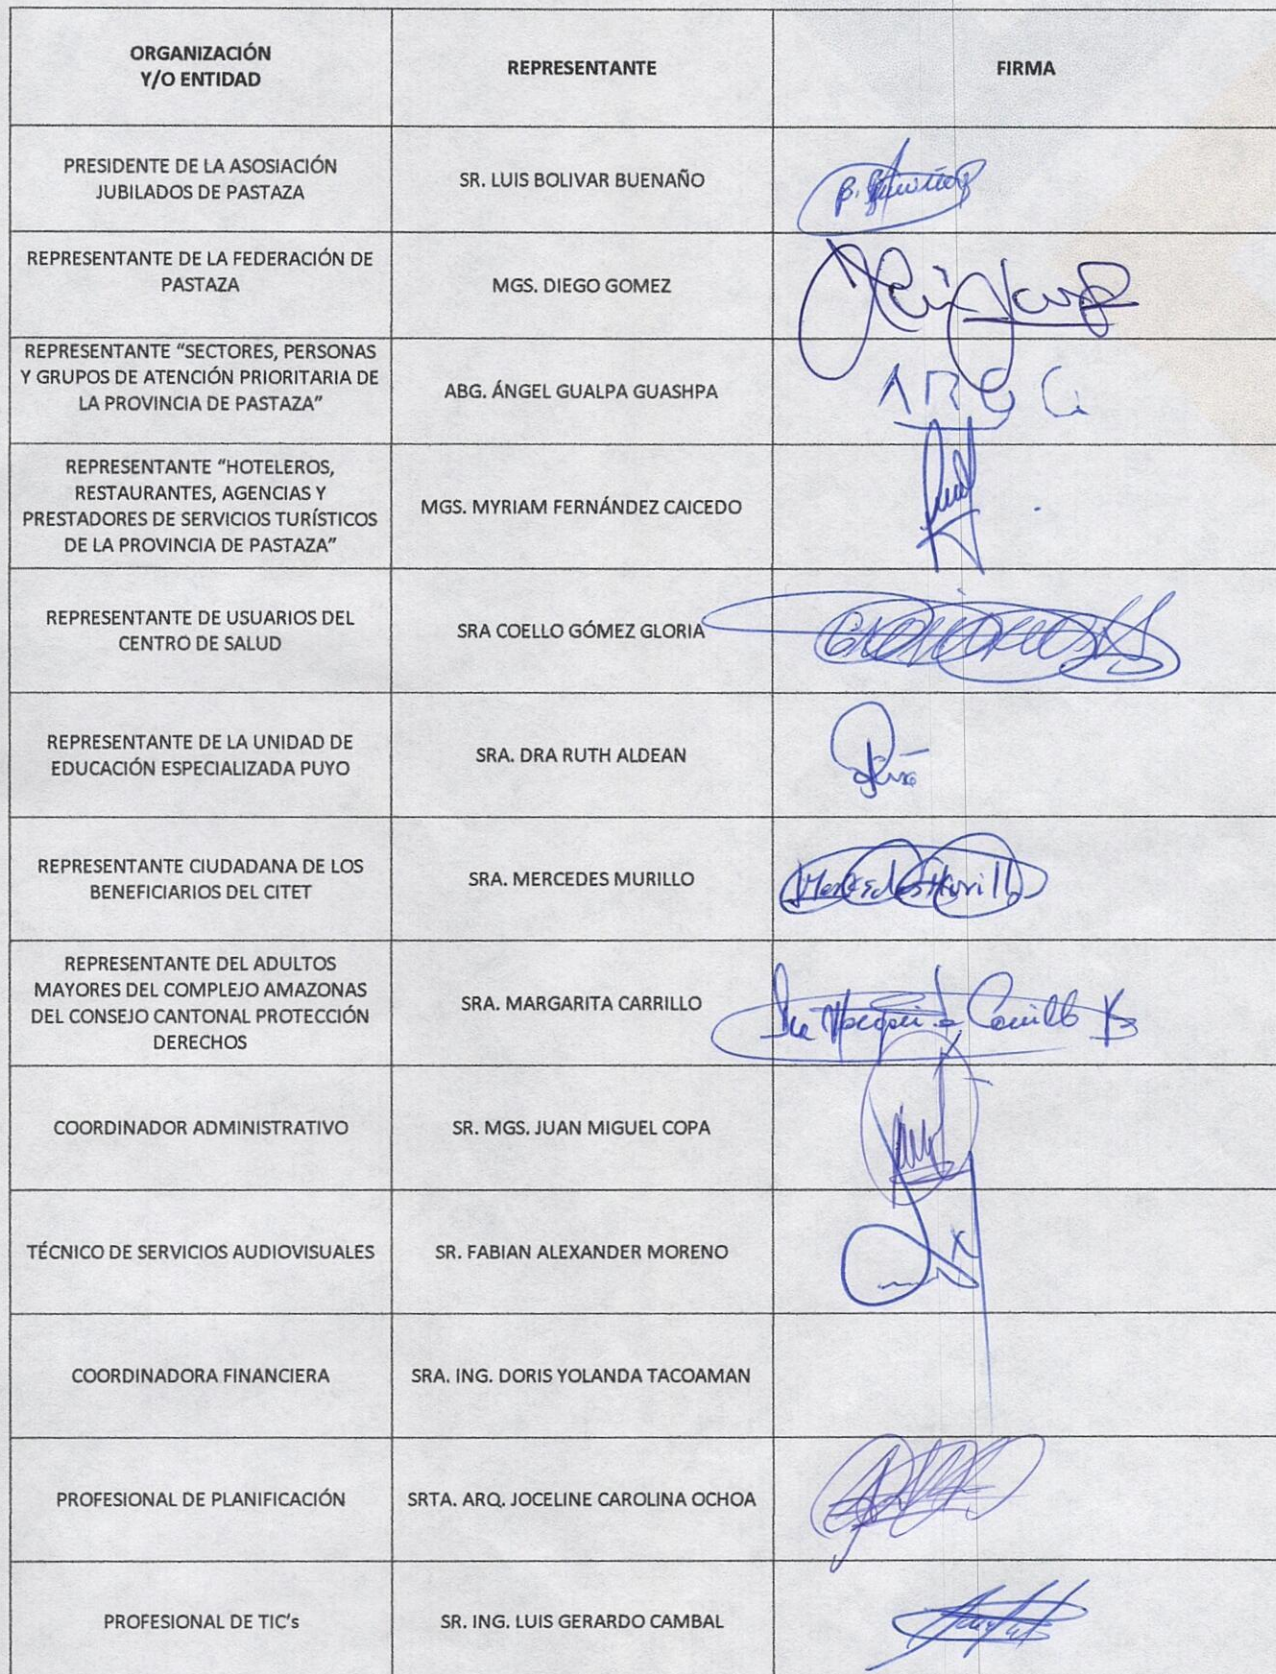 ORGANIZACIÓN
Y/O ENTIDAD
REPRESENTANTE
FIRMA
PRESIDENTE DE LA ASOSIACIÓN
JUBILADOS DE PASTAZA
SR. LUIS BOLIVAR BUENAÑO
REPRESENTANTE DE LA FEDERACIÓN DE
PASTAZA
MGS. DIEGO GOMEZ
REPRESENTANTE “SECTORES, PERSONAS
Y GRUPOS DE ATENCIÓN PRIORITARIA DE
LA PROVINCIA DE PASTAZA”
ABG. ÁNGEL GUALPA GUASHPA
REPRESENTANTE “HOTELEROS,
RESTAURANTES, AGENCIAS Y
PRESTADORES DE SERVICIOS TURÍSTICOS
DE LA PROVINCIA DE PASTAZA”
MGS. MYRIAM FERNÁNDEZ CAICEDO
REPRESENTANTE DE USUARIOS DEL
CENTRO DE SALUD
SRA COELLO GÓMEZ GLORIA
REPRESENTANTE DE LA UNIDAD DE
EDUCACIÓN ESPECIALIZADA PUYO
SRA. DRA RUTH ALDEAN
REPRESENTANTE CIUDADANA DE LOS
BENEFICIARIOS DEL CITET
SRA. MERCEDES MURILLO
Mercedes Murillo
REPRESENTANTE DEL ADULTOS
MAYORES DEL COMPLEJO AMAZONAS
DEL CONSEJO CANTONAL PROTECCIÓN
DERECHOS
SRA. MARGARITA CARRILLO
COORDINADOR ADMINISTRATIVO
SR. MGS. JUAN MIGUEL COPA
TÉCNICO DE SERVICIOS AUDIOVISUALES
SR. FABIAN ALEXANDER MORENO
COORDINADORA FINANCIERA
SRA. ING. DORIS YOLANDA TACOAMAN
PROFESIONAL DE PLANIFICACIÓN
SRTA. ARQ. JOCELINE CAROLINA OCHOA
PROFESIONAL DE TIC's
SR. ING. LUIS GERARDO CAMBAL